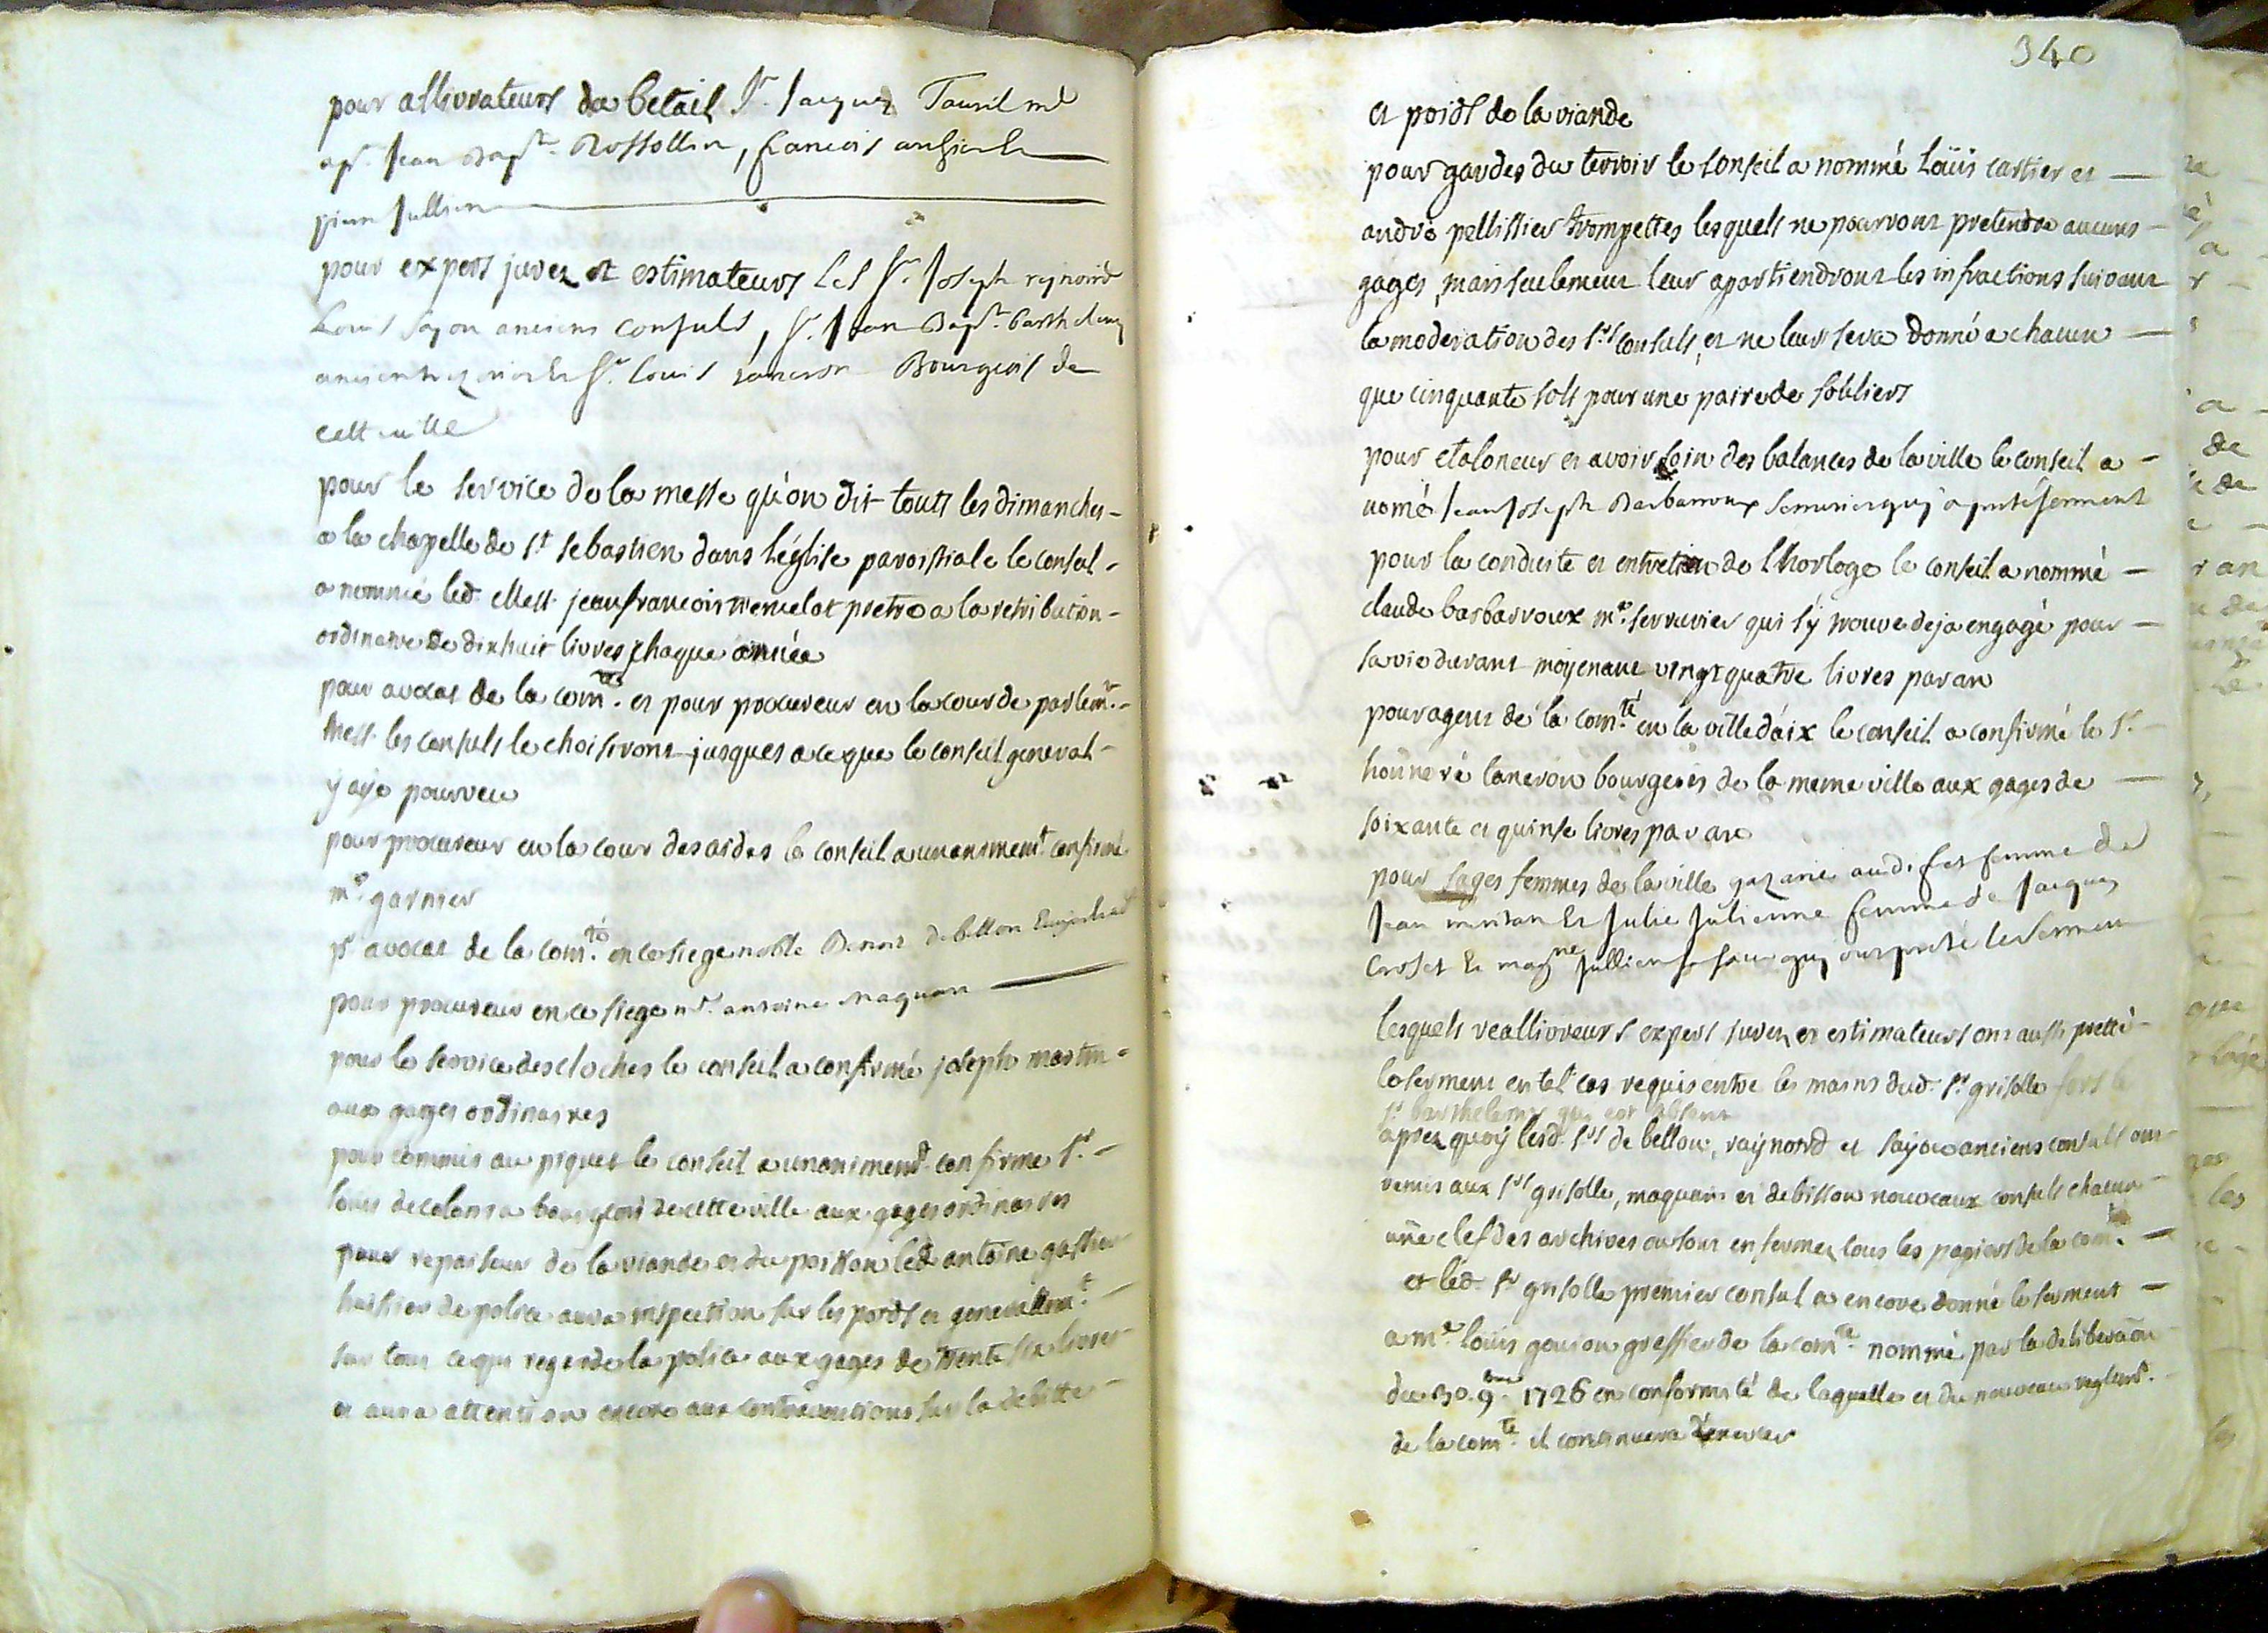 pour allivrateurs du betail Sr. Jacques Tauril md
apr. Jean Bapt. Rossollin, francois
pierre Jullien
pour expers jurez et estimateurs Les Srs Joseph rejnord
Louis sayou anciens consuls, Sr. Jean Bapt. Barthelemy
ancien tresorier Et Sr. Louis Laneron Bourgeois de
cette ville
pour le service de la messe qu'on dit touts les dimanches -
a la chapelle de St sebastien dans l'église paroissiale le conseil -
a nommé led. Mess. jean francois pretre a la retribution -
ordinaire de dix huit livres chaque année
pour avocat de la comté. et pour procureur en la cour de parlemt. -
Mess. les consuls le choisiront jusques a ce que le conseil general -
y aye pourveu
pour procureur en la cour des aides le conseil a unanimemt confirmé
me. garnier
pr avocat de la comté. en ce siege noble Benoit de bellon
pour procureur en ce siege me. antoine maquan
pour le service des cloches le conseil a confirmé joseph martin -
aux gages ordinaires
pour commis au piquet le conseil a unanimemt. confirmé Sr. -
louis de colonia bourgeois de cette ville aux gages ordinaires
pour repaiseur de la viande et du poisson led. antoine
huissier de police aura inspection sur les poids et generallemt. -
sur tout ce qui regarde la police aux gages de trente six livres
et aura attention encore aux contraventions sur la debitte -
340
et poids de la viande
pour gardes du terroir le conseil a nommé Loüis cartier et —
andré pellissier trompettes lesquels ne pourront pretendre aucuns -
gages, mais seulement leur apartiendront les infractions suivant
la moderation des Srs consuls, et ne leur sera donné a chacun —
que cinquante sols pour une paire de soulliers
pour etaloneur et avoir soin des balances de la ville le conseil a -
nomé Jean Joseph Barbarroux serrurier quy a preté serment
pour la conduite et entretien de l'horloge le conseil a nommé —
claude barbarroux me. serrurier qui s'y trouve deja engagé pour —
sa vie durant moyenant vingt quatre livres par an
pour agent de la comté. en la ville d'aix le conseil a confirmé le Sr. -
honnoré laneron bourgeois de la meme ville aux gages de —
soixante et quinse livres par an
pour sages femmes de la ville femme de
Jean Et Julie Julienne femme de Jacques
Croset Et magne Jullien sa soeur quy ont preté le serment
lesquels reallivreurs expers jurez et estimateurs ont aussi pretté -
le serment en tel cas requis entre les mains dud. Sr. grisolle fors le
Sr barthelemy qui est absent
aprez quoy lesd. Srs de bellon, raynord et sayou anciens consuls ont -
remis aux Srs grisolle, maquan et de bisson nouveaux consuls chacun -
une clef des archives ou sont enfermez tous les papiers de la comté. —
et led. Sr grisolle premier consul a encore donné le serment —
a me. louis goujon greffier de la comté nommé par la deliberaon
du 30. 9bre 1726 en conformité de laquelle et du nouveau reglemt. -
de la comté. il continuera d'exercer